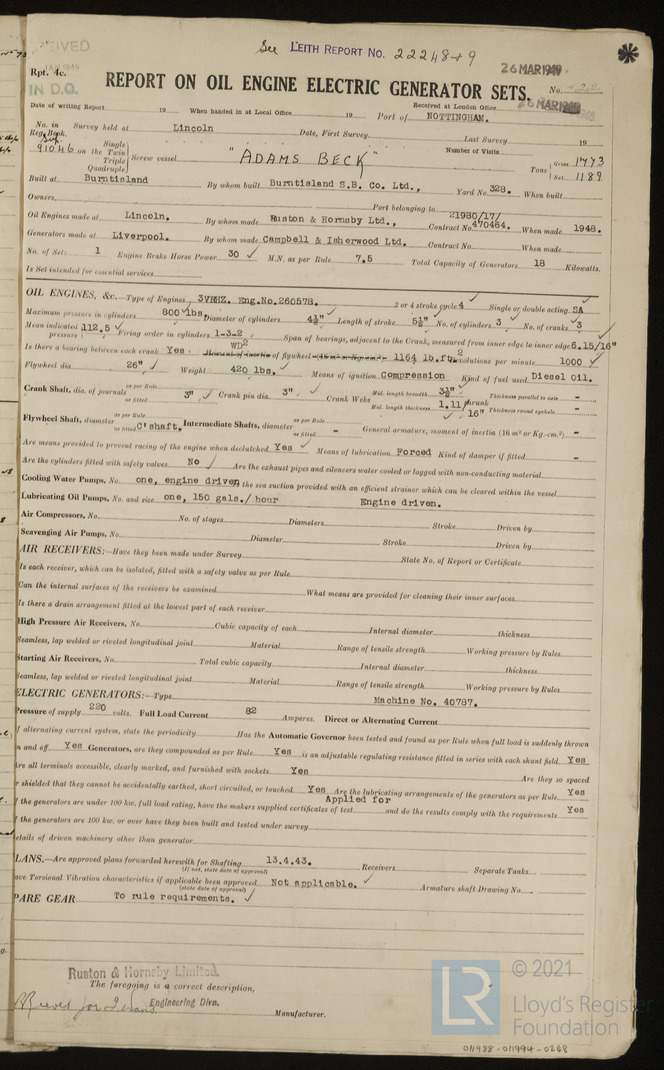 See LEITH REPORT No. 22248+9
26 MAR 1949
Rpt. 4c.
IN D.O.
REPORT ON OIL ENGINE ELECTRIC GENERATOR SETS.
No.
Date of writing Report 19 When handed in at Local Office 19 Received at London Office 26 MAR
Port of NOTTINGHAM.
No. in Reg. Book. Survey held at Lincoln Date, First Survey Last Survey 19
Number of Visits
91046 on the Single Twin Triple Quadruple Screw vessel "ADAMS BECK" Tons Gross 1773 Net 1189
Built at Burntisland By whom built Burntisland S.B. Co. Ltd., Yard No. 328. When built
Owners Port belonging to
Oil Engines made at Lincoln. By whom made Ruston & Hornsby Ltd., Contract No. 21980/17/ 470484. When made 1948.
Generators made at Liverpool. By whom made Campbell & Isherwood Ltd. Contract No. When made
No. of Sets 1 Engine Brake Horse Power 30 M.N. as per Rule 7.5 Total Capacity of Generators 18 Kilowatts.
Is Set intended for essential services
OIL ENGINES, &c.—Type of Engines 3VEHZ. Eng.No.260578. 2 or 4 stroke cycle 4 Single or double acting SA
Maximum pressure in cylinders 800 lbs. Diameter of cylinders 4⅜" Length of stroke 5½" No. of cylinders 3 No. of cranks 3
Mean indicated pressure 112.5 Firing order in cylinders 1-3-2 Span of bearings, adjacent to the Crank, measured from inner edge to inner edge 6.15/16"
Is there a bearing between each crank Yes Moment of inertia WD² of flywheel (16 m² or Kg.-cm.²) 1164 lb.ft.² Revolutions per minute 1000
Flywheel dia. 26" Weight 420 lbs. Means of ignition Compression Kind of fuel used Diesel Oil.
Crank Shaft, dia. of journals as per Rule as fitted 3" Crank pin dia. 3" Crank Webs Mid. length breadth 3½" Mid. length thickness 1.11/16" shrunk Thickness parallel to axis - Thickness round eyehole -
Flywheel Shaft, diameter as per Rule as fitted C'shaft. Intermediate Shafts, diameter as per Rule as fitted - General armature, moment of inertia (16 m² or Kg.-cm.²) -
Are means provided to prevent racing of the engine when declutched Yes Means of lubrication Forced Kind of damper if fitted -
Are the cylinders fitted with safety valves No Are the exhaust pipes and silencers water cooled or lagged with non-conducting material
Cooling Water Pumps, No. one, engine driven Is the sea suction provided with an efficient strainer which can be cleared within the vessel
Lubricating Oil Pumps, No. and size one, 150 gals./ hour Engine driven.
Air Compressors, No. No. of stages Diameters Stroke Driven by
Scavenging Air Pumps, No. Diameter Stroke Driven by
AIR RECEIVERS:—Have they been made under Survey State No. of Report or Certificate
Is each receiver, which can be isolated, fitted with a safety valve as per Rule
Can the internal surfaces of the receivers be examined What means are provided for cleaning their inner surfaces
Is there a drain arrangement fitted at the lowest part of each receiver
High Pressure Air Receivers, No. Cubic capacity of each Internal diameter thickness
Seamless, lap welded or riveted longitudinal joint Material Range of tensile strength Working pressure by Rules
Starting Air Receivers, No. Total cubic capacity Internal diameter thickness
Seamless, lap welded or riveted longitudinal joint Material Range of tensile strength Working pressure by Rules
ELECTRIC GENERATORS:—Type Machine No. 40787.
Pressure of supply 220 volts. Full Load Current 82 Amperes. Direct or Alternating Current
If alternating current system, state the periodicity Has the Automatic Governor been tested and found as per Rule when full load is suddenly thrown
on and off Yes Generators, are they compounded as per Rule Yes is an adjustable regulating resistance fitted in series with each shunt field Yes
Are all terminals accessible, clearly marked, and furnished with sockets Yes Are they so spaced
or shielded that they cannot be accidentally earthed, short circuited, or touched Yes Are the lubricating arrangements of the generators as per Rule Yes
If the generators are under 100 kw. full load rating, have the makers supplied certificates of test Applied for and do the results comply with the requirements Yes
If the generators are 100 kw. or over have they been built and tested under survey
Details of driven machinery other than generator
PLANS.—Are approved plans forwarded herewith for Shafting 13.4.43. Receivers Separate Tanks
(If not, state date of approval)
Have Torsional Vibration characteristics if applicable been approved Not applicable. Armature shaft Drawing No.
(state date of approval)
SPARE GEAR To rule requirements.
Ruston & Hornsby Limited.
The foregoing is a correct description,
Engineering Divn.
Manufacturer.
© 2021
LR
Lloyd's Register
Foundation
011988-011994-0268